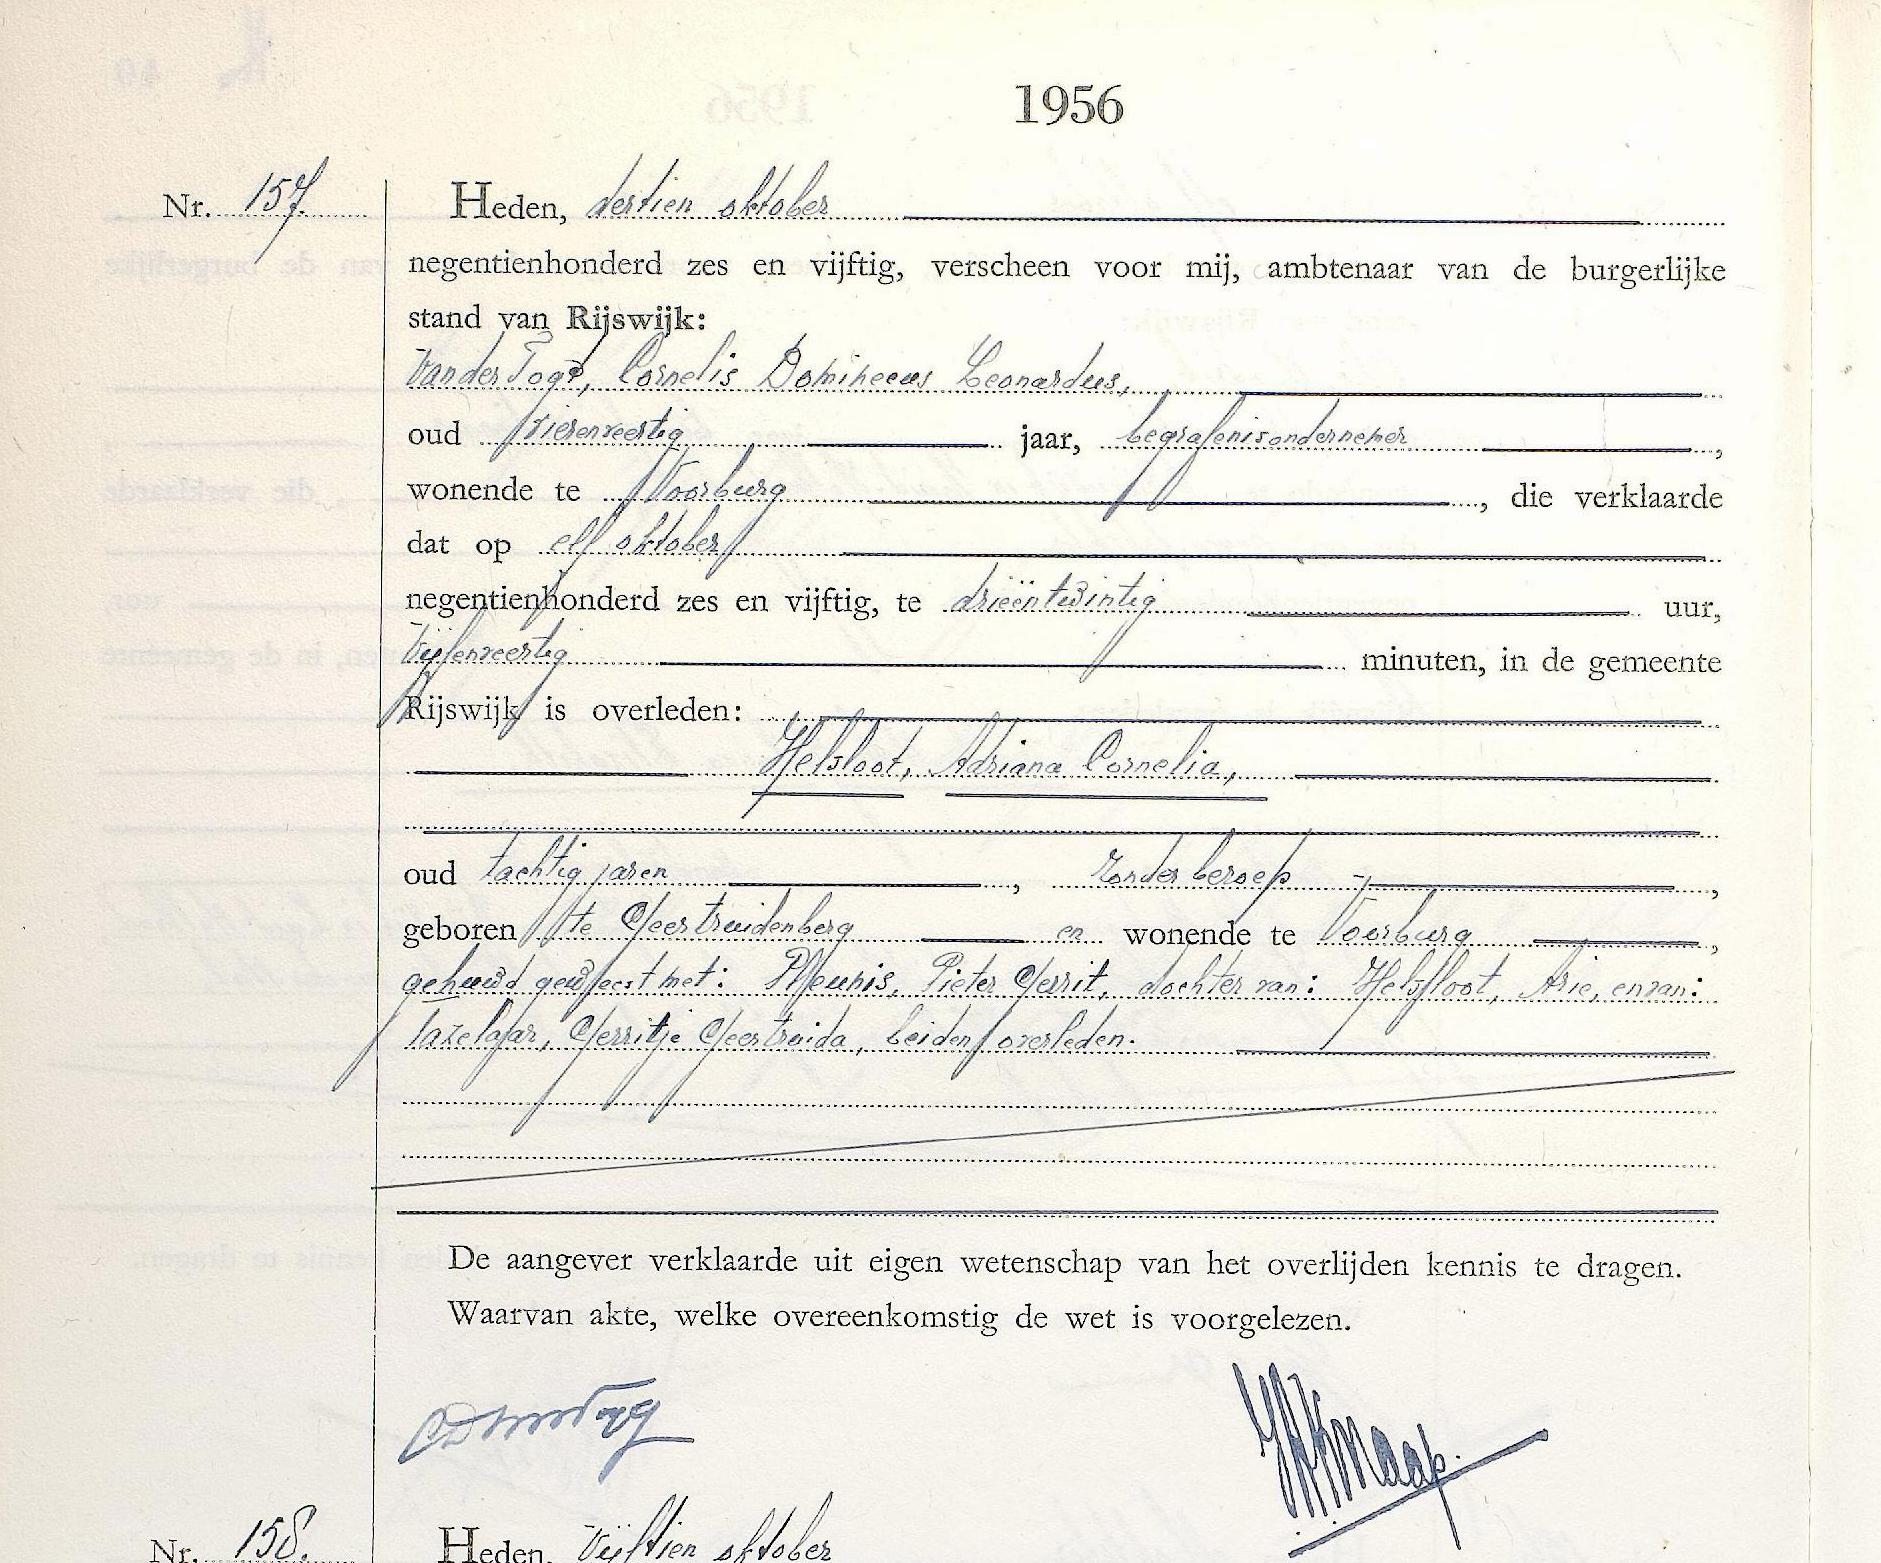 1956
Nr. 157. Heden, dertien oktober
negentienhonderd zes en vijftig, verscheen voor mij, ambtenaar van de burgerlijke
stand van Rijswijk:
Van der Togt, Cornelis Dominecus Leonardus,
oud vierenveertig jaar, begrafenisondernemer,
wonende te Voorburg, die verklaarde
dat op elf oktober
negentienhonderd zes en vijftig, te drieëntwintig uur,
Vijfenveertig minuten, in de gemeente
Rijswijk is overleden:
Helsloot, Adriana Cornelia,
oud tachtig jaren, zonder beroep,
geboren te Geertruidenberg en wonende te Voorburg,
gehuwd geweest met: Meunis, Pieter Gerrit, dochter van: Helsloot, Arie, en van:
Tazelaar, Gerritje Geertruida, beiden overleden.
De aangever verklaarde uit eigen wetenschap van het overlijden kennis te dragen.
Waarvan akte, welke overeenkomstig de wet is voorgelezen.
Nr. 158. Heden, Vijftien oktober